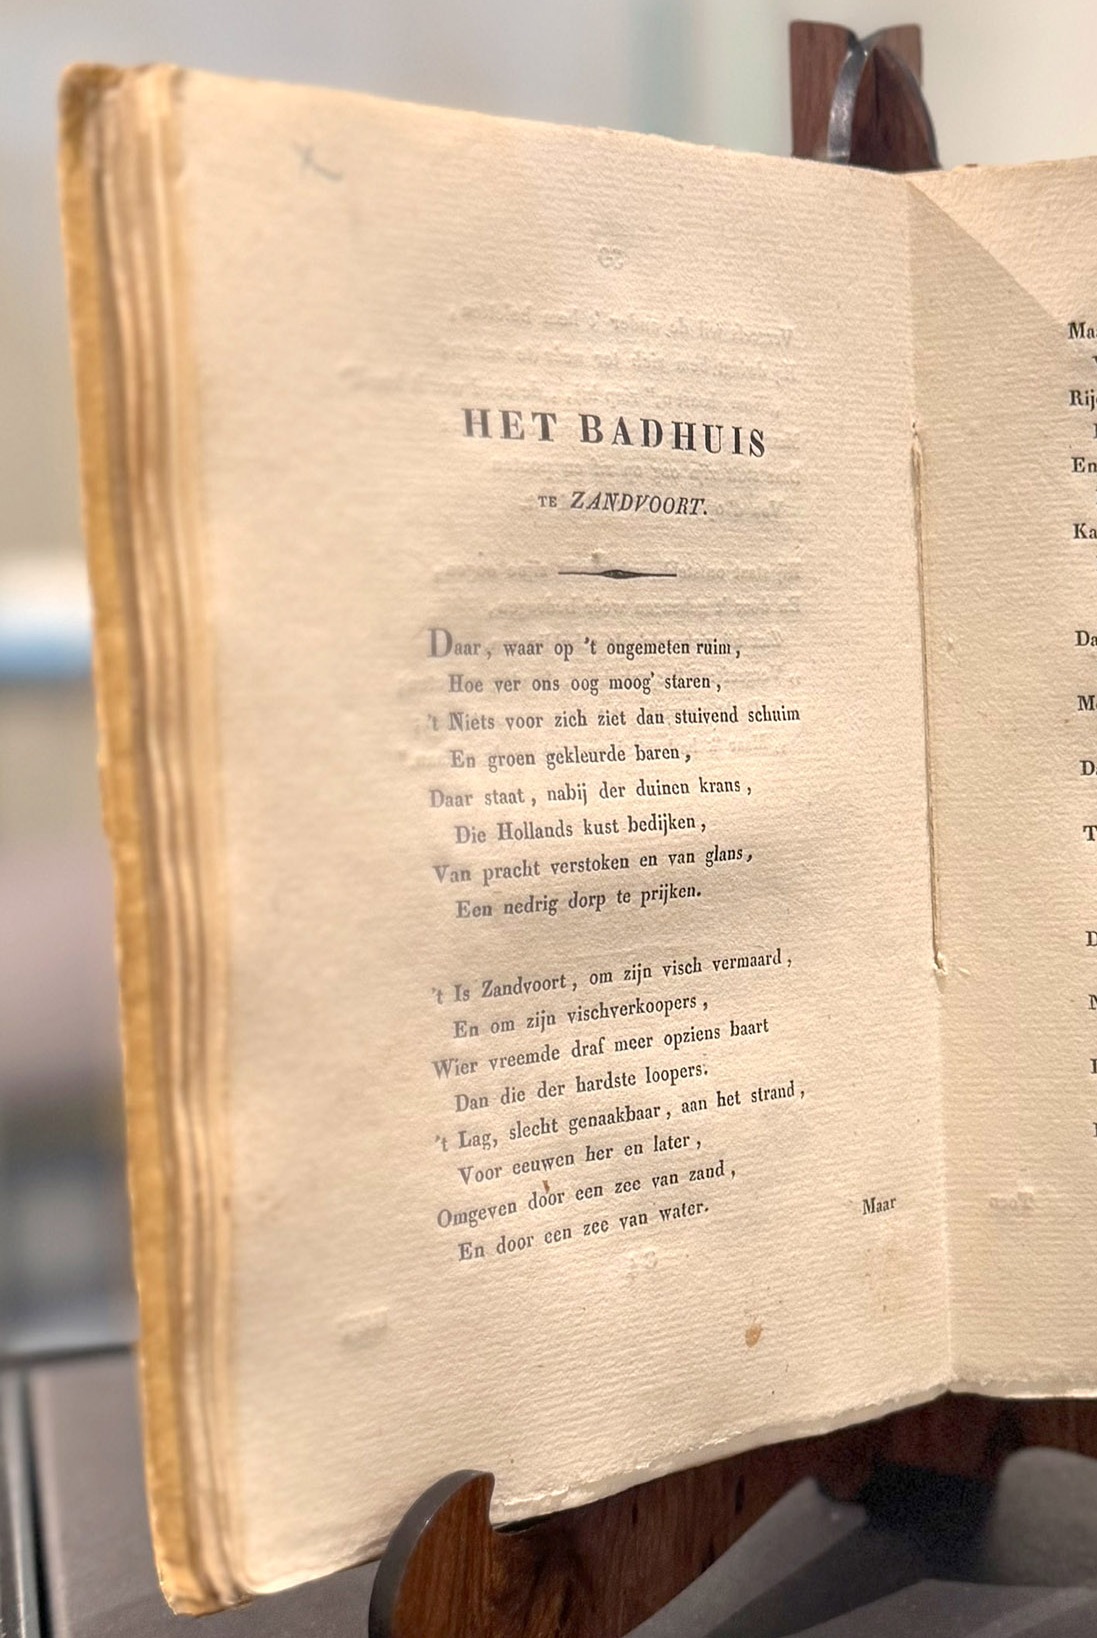 HET BADHUIS
TE ZANDVOORT.
Daar, waar op 't ongemeten ruim,
Hoe ver ons oog moog' staren,
't Niets voor zich ziet dan stuivend schuim
En groen gekleurde baren,
Daar staat, nabij der duinen krans,
Die Hollands kust bedijken,
Van pracht verstoken en van glans,
Een nedrig dorp te prijken.
't Is Zandvoort, om zijn visch vermaard,
En om zijn vischverkoopers,
Wier vreemde draf meer opziens baart
Dan die der hardste loopers.
't Lag, slecht genaakbaar, aan het strand,
Voor eeuwen her en later,
Omgeven door een zee van zand,
En door een zee van water.
Maar
Rij
En
Ka
Da